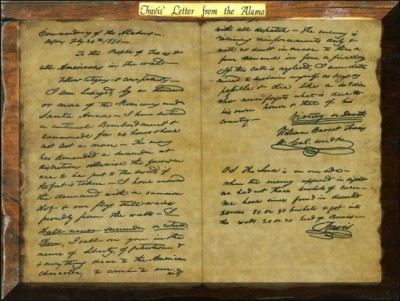 Travis' Letter from the Alamo
Commandancy of the Alamo—
Bejar, Feby 24th 1836—
To the People of Texas &
all Americans in the world—
Fellow citizens & compatriots—
I am besieged, by a thousand
or more of the Mexicans under
Santa Anna — I have sustained
a continual Bombardment &
cannonade for 24 hours & have
not lost a man — The enemy
has demanded a surrender at
discretion, otherwise, the garrison
are to be put to the sword, if
the fort is taken — I have answered
the demand with a cannon
shot, & our flag still waves
proudly from the walls — I
shall never surrender or retreat
Then, I call on you in the
name of Liberty, of patriotism &
& every thing dear to the American
character, to come to our aid
with all dispatch — The enemy is
receiving reinforcements daily &
will no doubt increase to three or
four thousand in four or five days.
If this call is neglected, I am deter
mined to sustain myself as long as
possible & die like a soldier
who never forgets what is due to
his own honor & that of his
country —
Victory or Death
William Barret Travis
Lt. Col. comdt
P.S. The Lord is on our side —
When the enemy appeared in sight
we had not three bushels of corn —
We have since found in deserted
houses 80 or 90 bushels & got into
the walls 20 or 30 head of Beeves —
Travis